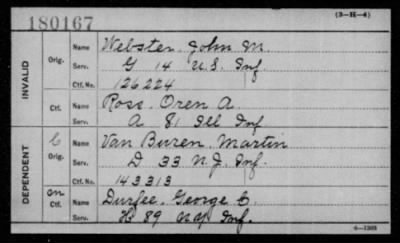 180167
(3-H-4)
INVALID
Orig.
Name Webster, John M.
Serv. G 14 U.S. Inf.
Ctf. No. 126224
Ctf.
Name Ross, Oren A.
Serv. A 81 Ill Inf
DEPENDENT
C
Orig.
Name Van Buren, Martin
Serv. D 33 N.J. Inf.
Ctf. No. 143313
Ctf.
Name Durfee, George C.
Serv. H 89 N.Y. Inf.